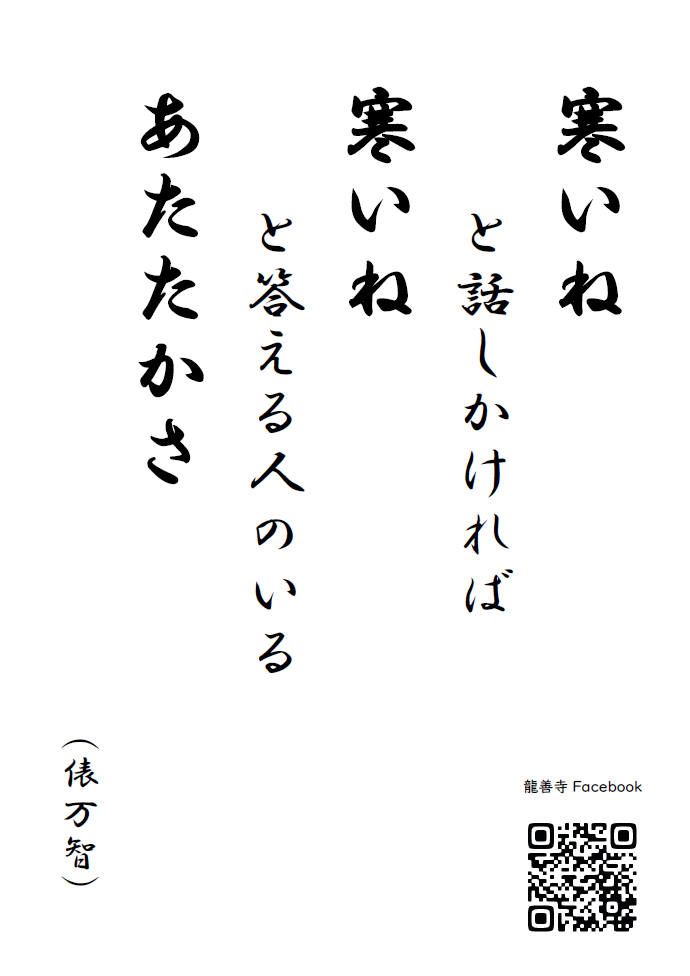 寒いね
と話しかければ
寒いね
と答える人のいる
あたたかさ
（俵万智）
龍善寺 Facebook